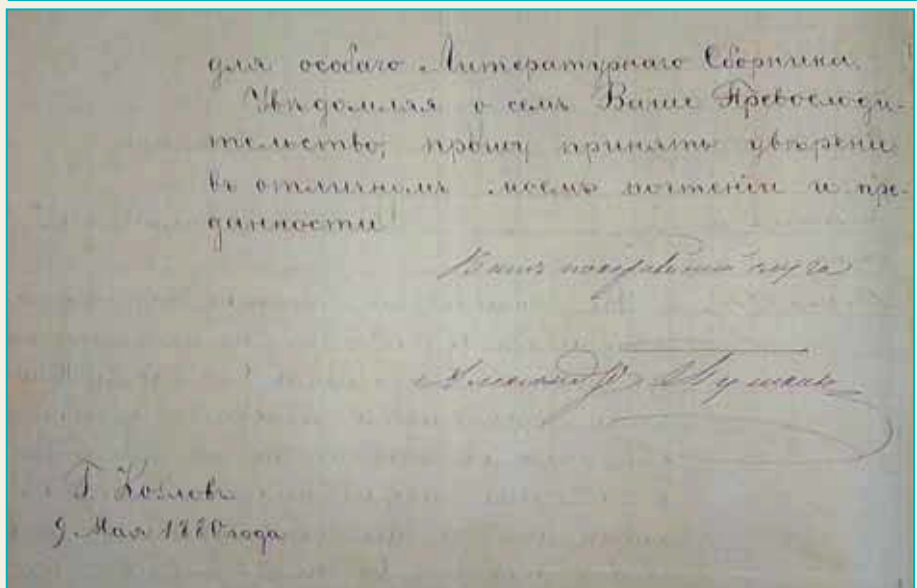 для особаго Литературнаго Сборника.
Увѣдомляя о семъ Ваше Превосходи-
тельство, прошу принять увѣрени
въ отличномъ моемъ почтеніи и пре-
данности.
Вашъ покорнѣйшій слуга
Александръ Пушкинъ
Г. Козловъ
9 Мая 1880 года